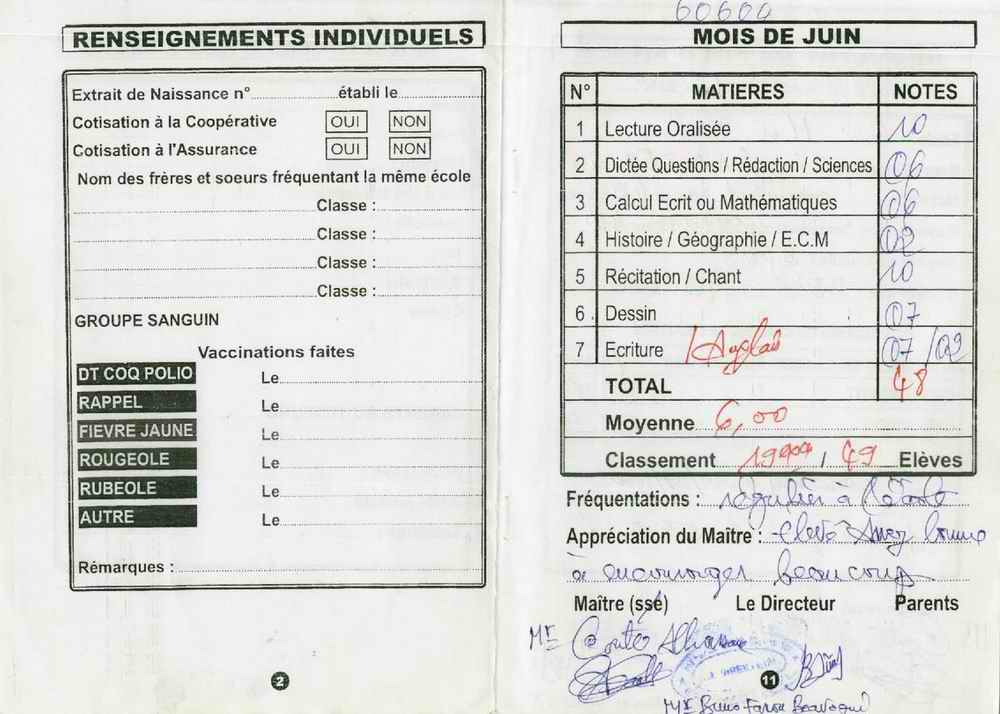 RENSEIGNEMENTS INDIVIDUELS
Extrait de Naissance n°.................. établi le..................
Cotisation à la Coopérative OUI NON
Cotisation à l'Assurance OUI NON
Nom des frères et soeurs fréquentant la même école
Classe :
Classe :
Classe :
Classe :
GROUPE SANGUIN
Vaccinations faites
DT COQ POLIO Le
RAPPEL Le
FIEVRE JAUNE Le
ROUGEOLE Le
RUBEOLE Le
AUTRE Le
Rémarques :
2
60604
MOIS DE JUIN
N° MATIERES NOTES
1 Lecture Oralisée 10
2 Dictée Questions / Rédaction / Sciences 06
3 Calcul Ecrit ou Mathématiques 06
4 Histoire / Géographie / E.C.M 02
5 Récitation / Chant 10
6 Dessin 07
7 Ecriture /Anglais 07/02
TOTAL 48
Moyenne 6,00
Classement 19 / 49 Elèves
Fréquentations : régulier à l'école
Appréciation du Maître : élève Assez bonne
à encourager beaucoup
Maître (sse) Le Directeur Parents
Mr
11
Mr